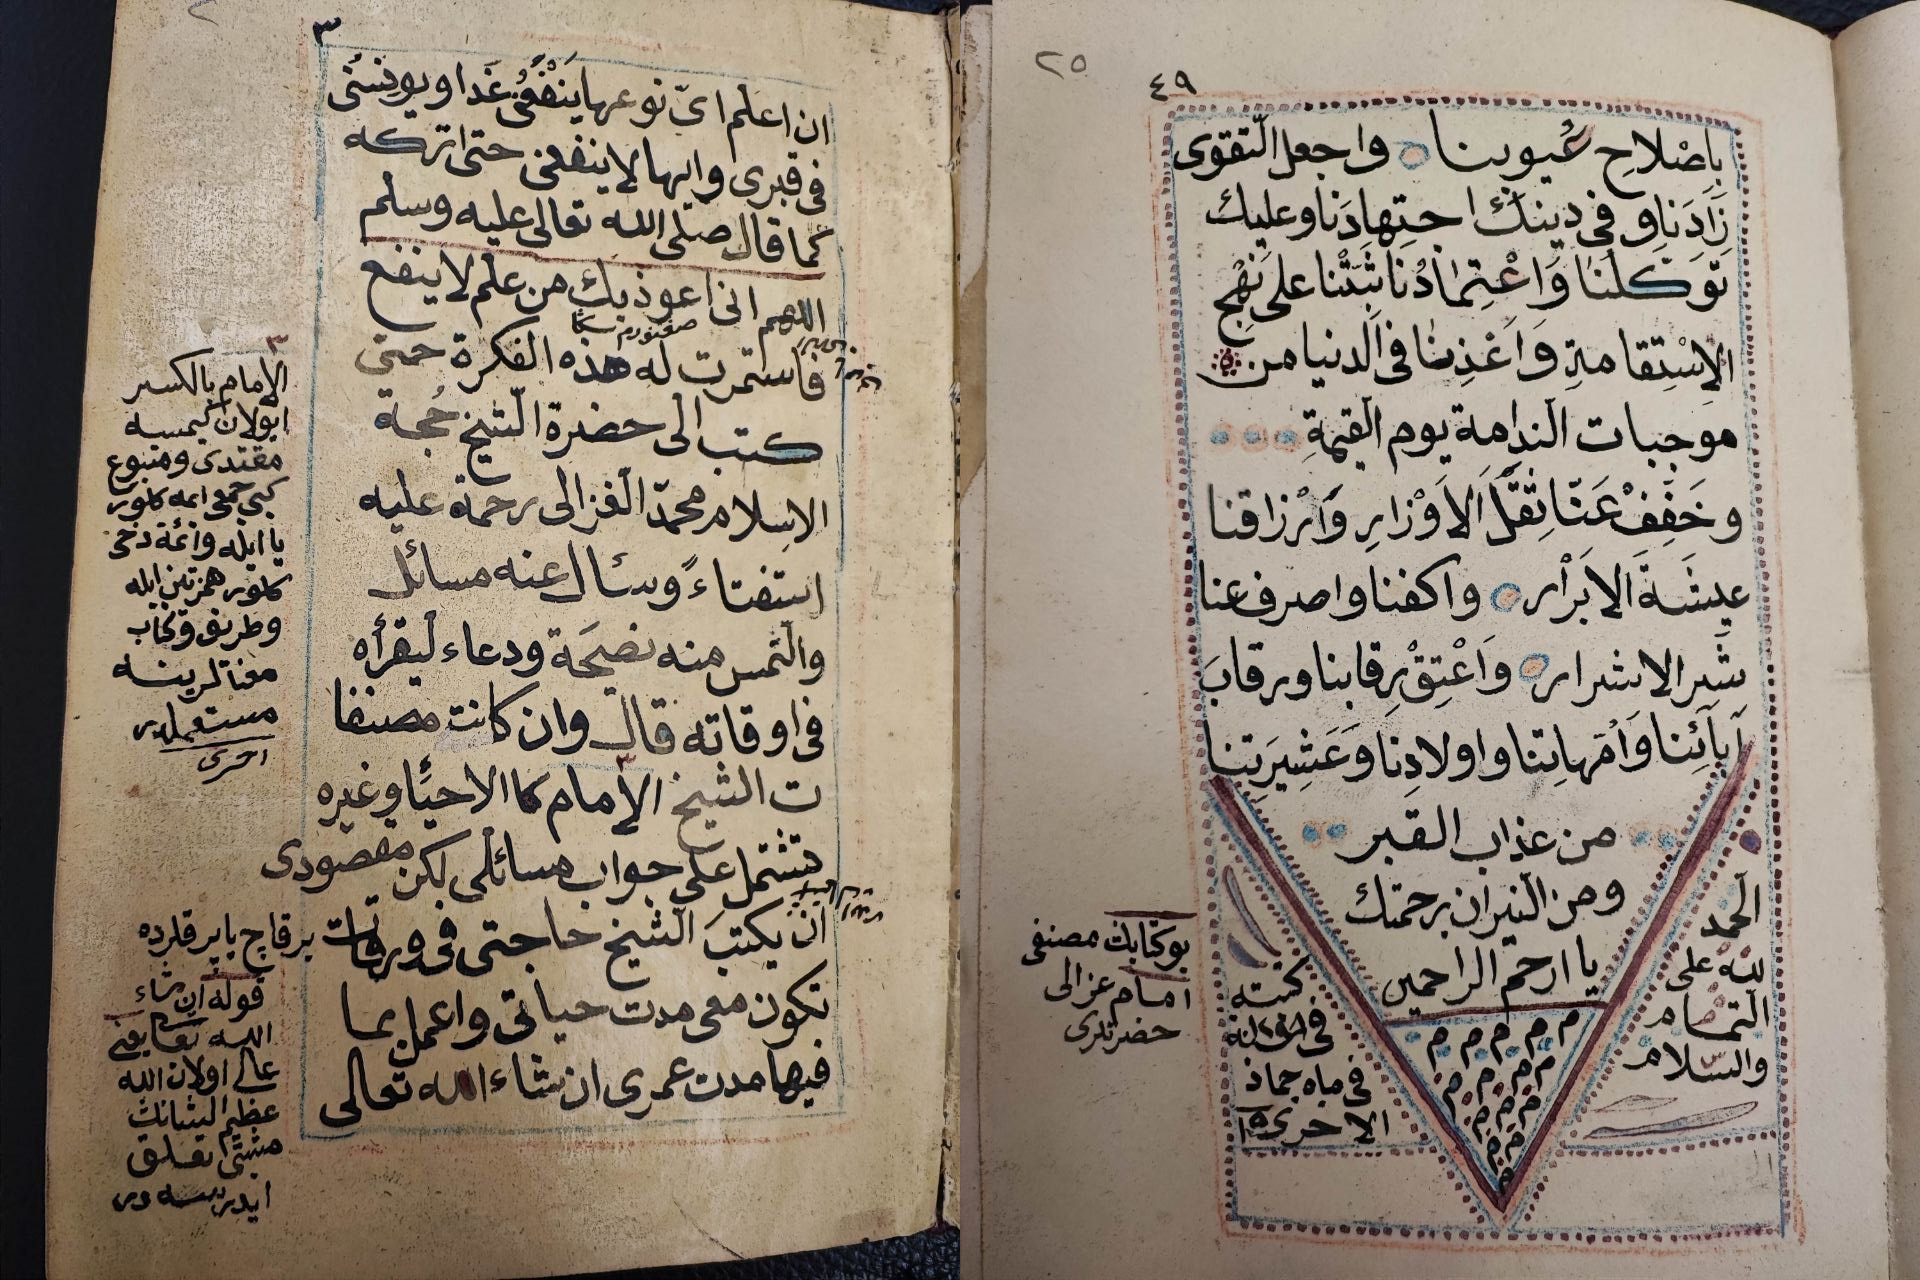 ٣
ان اعلم اىّ نوعها ينفعنى غدا ويونسنى
فى قبرى وايها لا ينفعنى حتى اتركه
كما قال صلى الله تعالى عليه وسلم
اللهم انى اعوذ بك من علم لا ينفع
فاستمرت له هذه الفكرة حتى
كتب الى حضرة الشيخ حُجة
الاسلام محمّد الغزالى رحمة عليه
استفتاءً وسئال عنه مسائل
والتمس منه نصيحَة ودعاء ليقرأه
فى اوقاته قال وان كانت مصنفا
ت الشيخ الإمام كا الاحيّا وغيره
يشتمل على جواب مسائلى لكن مقصودى
ان يكتبَ الشيخ حاجتى فى ورقات
تكون معى مدت حياتى واعمل بما
فيها مدت عمرى ان شاء الله تعالى
٣
الإمام بالكسر
اولان كيمسه
مقتدى ومتبوع
كبى جمعى ائمه كلور
يا ايله وائمة دخى
كلور همزتين ايله
وطريق وكتاب
معنالرينه
مستعملدر
اخرى
برقاچ ياپرقلرده
قوله ان شاء
الله تعا يعنى
عالى اولان الله
عظيم الشانك
مشيّتى تعلق
ايدرسه در
٢٥
٤٩
باصْلاحِ عُيوبنا واجعل التّقوى
زَادَنا وفى دينك اجتهادَنا وعليك
تَوَكلنَا وَاعْتِمَادُنا ثَبّتْنا على نَهْج
الإسْتِقامةِ وَاَعِذنا فى الدنيا من
موجبات الندامة يوم القيمةِ
وخَفِّفْ عَنّا ثِقَلَ الاَوْزارِ وَارْزاقنا
عيشَةَ الابَرْار واكفنا واصرف عنا
شَر الاشرار وَاعْتِقْ رِقابنا ورقابَ
آبَائِنا وَاُمّهاتِنا واولادِنا وَعَشِيرَتِنا
من عذاب القبر
ومن النيران برحمتك
يا ارحم الراحمين
م م م م م
الحمد
لله على
التّمام
والسلام
كتبته
فى ماه جماذ
الاخرى
بو كتابك مصنفى
امام غزالى
حضرتلرى